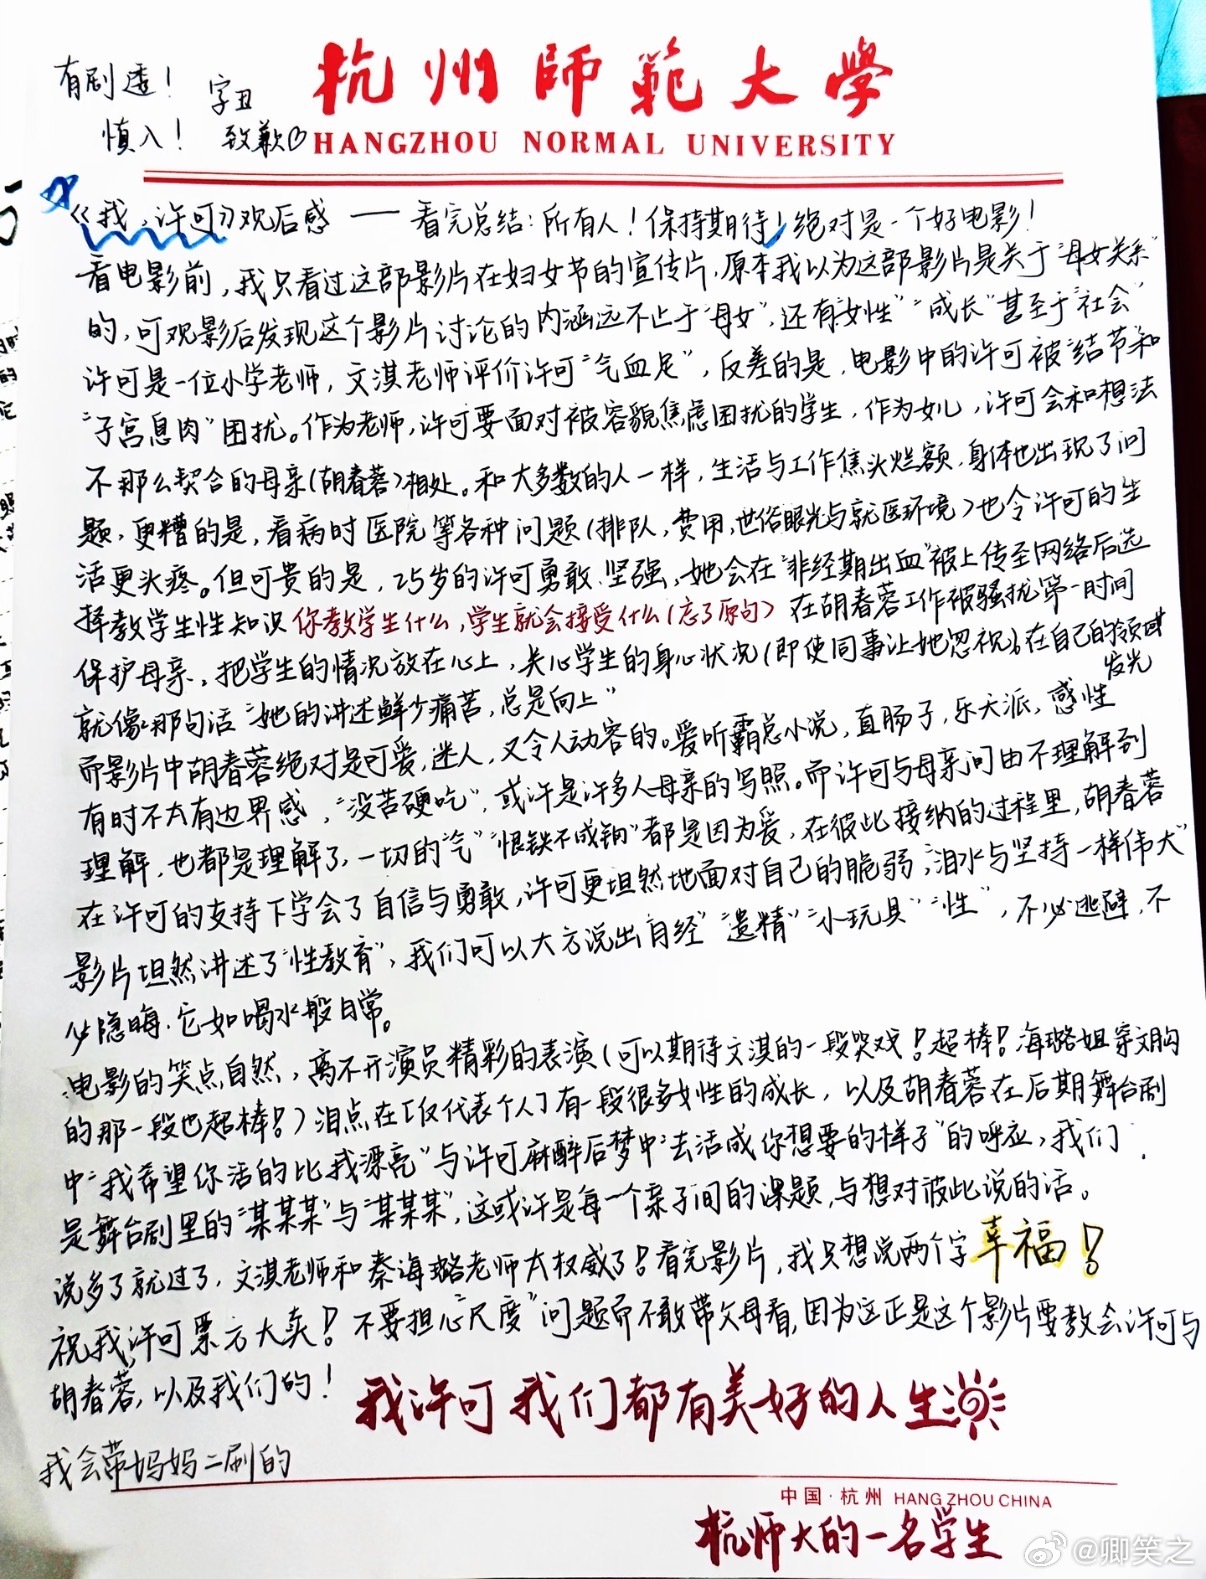 有剧透！ 字丑
慎入！ 致歉♡
杭州師範大學
HANGZHOU NORMAL UNIVERSITY
《我，许可》观后感 —— 看完总结：所有人！保持期待！绝对是一个好电影！
看电影前，我只看过这部影片在妇女节的宣传片，原本我以为这部影片是关于“母女关系”
的，可观影后发现这个影片讨论的内涵远不止于“母女”，还有“女性”“成长”甚至于“社会”
许可是一位小学老师，文淇老师评价许可“气血足”，反差的是，电影中的许可被“结节”和
“子宫息肉”困扰。作为老师，许可要面对被容貌焦虑困扰的学生，作为女儿，许可会和想法
不那么契合的母亲（胡春蓉）相处。和大多数的人一样，生活与工作焦头烂额，身体也出现了问
题，更糟的是，看病时医院等各种问题（排队，费用，世俗眼光与就医环境）也令许可的生
活更头疼。但可贵的是，25岁的许可勇敢、坚强，她会在“非经期出血”被上传至网络后选
择教学生性知识 你教学生什么，学生就会接受什么（忘了原句） 在胡春蓉工作被骚扰第一时间
保护母亲，把学生的情况放在心上，关心学生的身心状况（即使同事让她忽视），在自己的领域
发光
就像那句话“她的讲述鲜少痛苦，总是向上”
而影片中胡春蓉绝对是可爱，迷人，又令人动容的。爱听霸总小说，直肠子，乐天派，感性
有时不太有边界感，“没苦硬吃”，或许是许多人母亲的写照。而许可与母亲间由不理解到
理解，也都是理解了，一切的“气”“恨铁不成钢”都是因为爱，在彼此接纳的过程里，胡春蓉
在许可的支持下学会了自信与勇敢，许可更坦然地面对自己的脆弱；“泪水与坚持一样伟大”
影片坦然讲述了“性教育”，我们可以大方说出“月经”“遗精”“小玩具”“性”，不必逃避，不
必隐晦，它如喝水般日常。
电影的笑点自然，离不开演员精彩的表演（可以期待文淇的一段哭戏！超棒！海璐姐穿文胸
的那一段也超棒！）泪点在「仅代表个人」有一段很多女性的成长，以及胡春蓉在后期舞台剧
中“我希望你活的比我漂亮”与许可麻醉后梦中“去活成你想要的样子”的呼应，我们
是舞台剧里的“某某某”与“某某某”，这或许是每一个亲子间的课题，与想对彼此说的话。
说多了就过了，文淇老师和秦海璐老师太权威了！看完影片，我只想说两个字 幸福！
祝我，许可票房大卖！不要担心“尺度”问题而不敢带父母看，因为这正是这个影片要教会许可与
胡春蓉，以及我们的！
我许可 我们都有美好的人生
我会带妈妈二刷的
中国·杭州 HANG ZHOU CHINA
杭师大的一名学生
@卿笑之